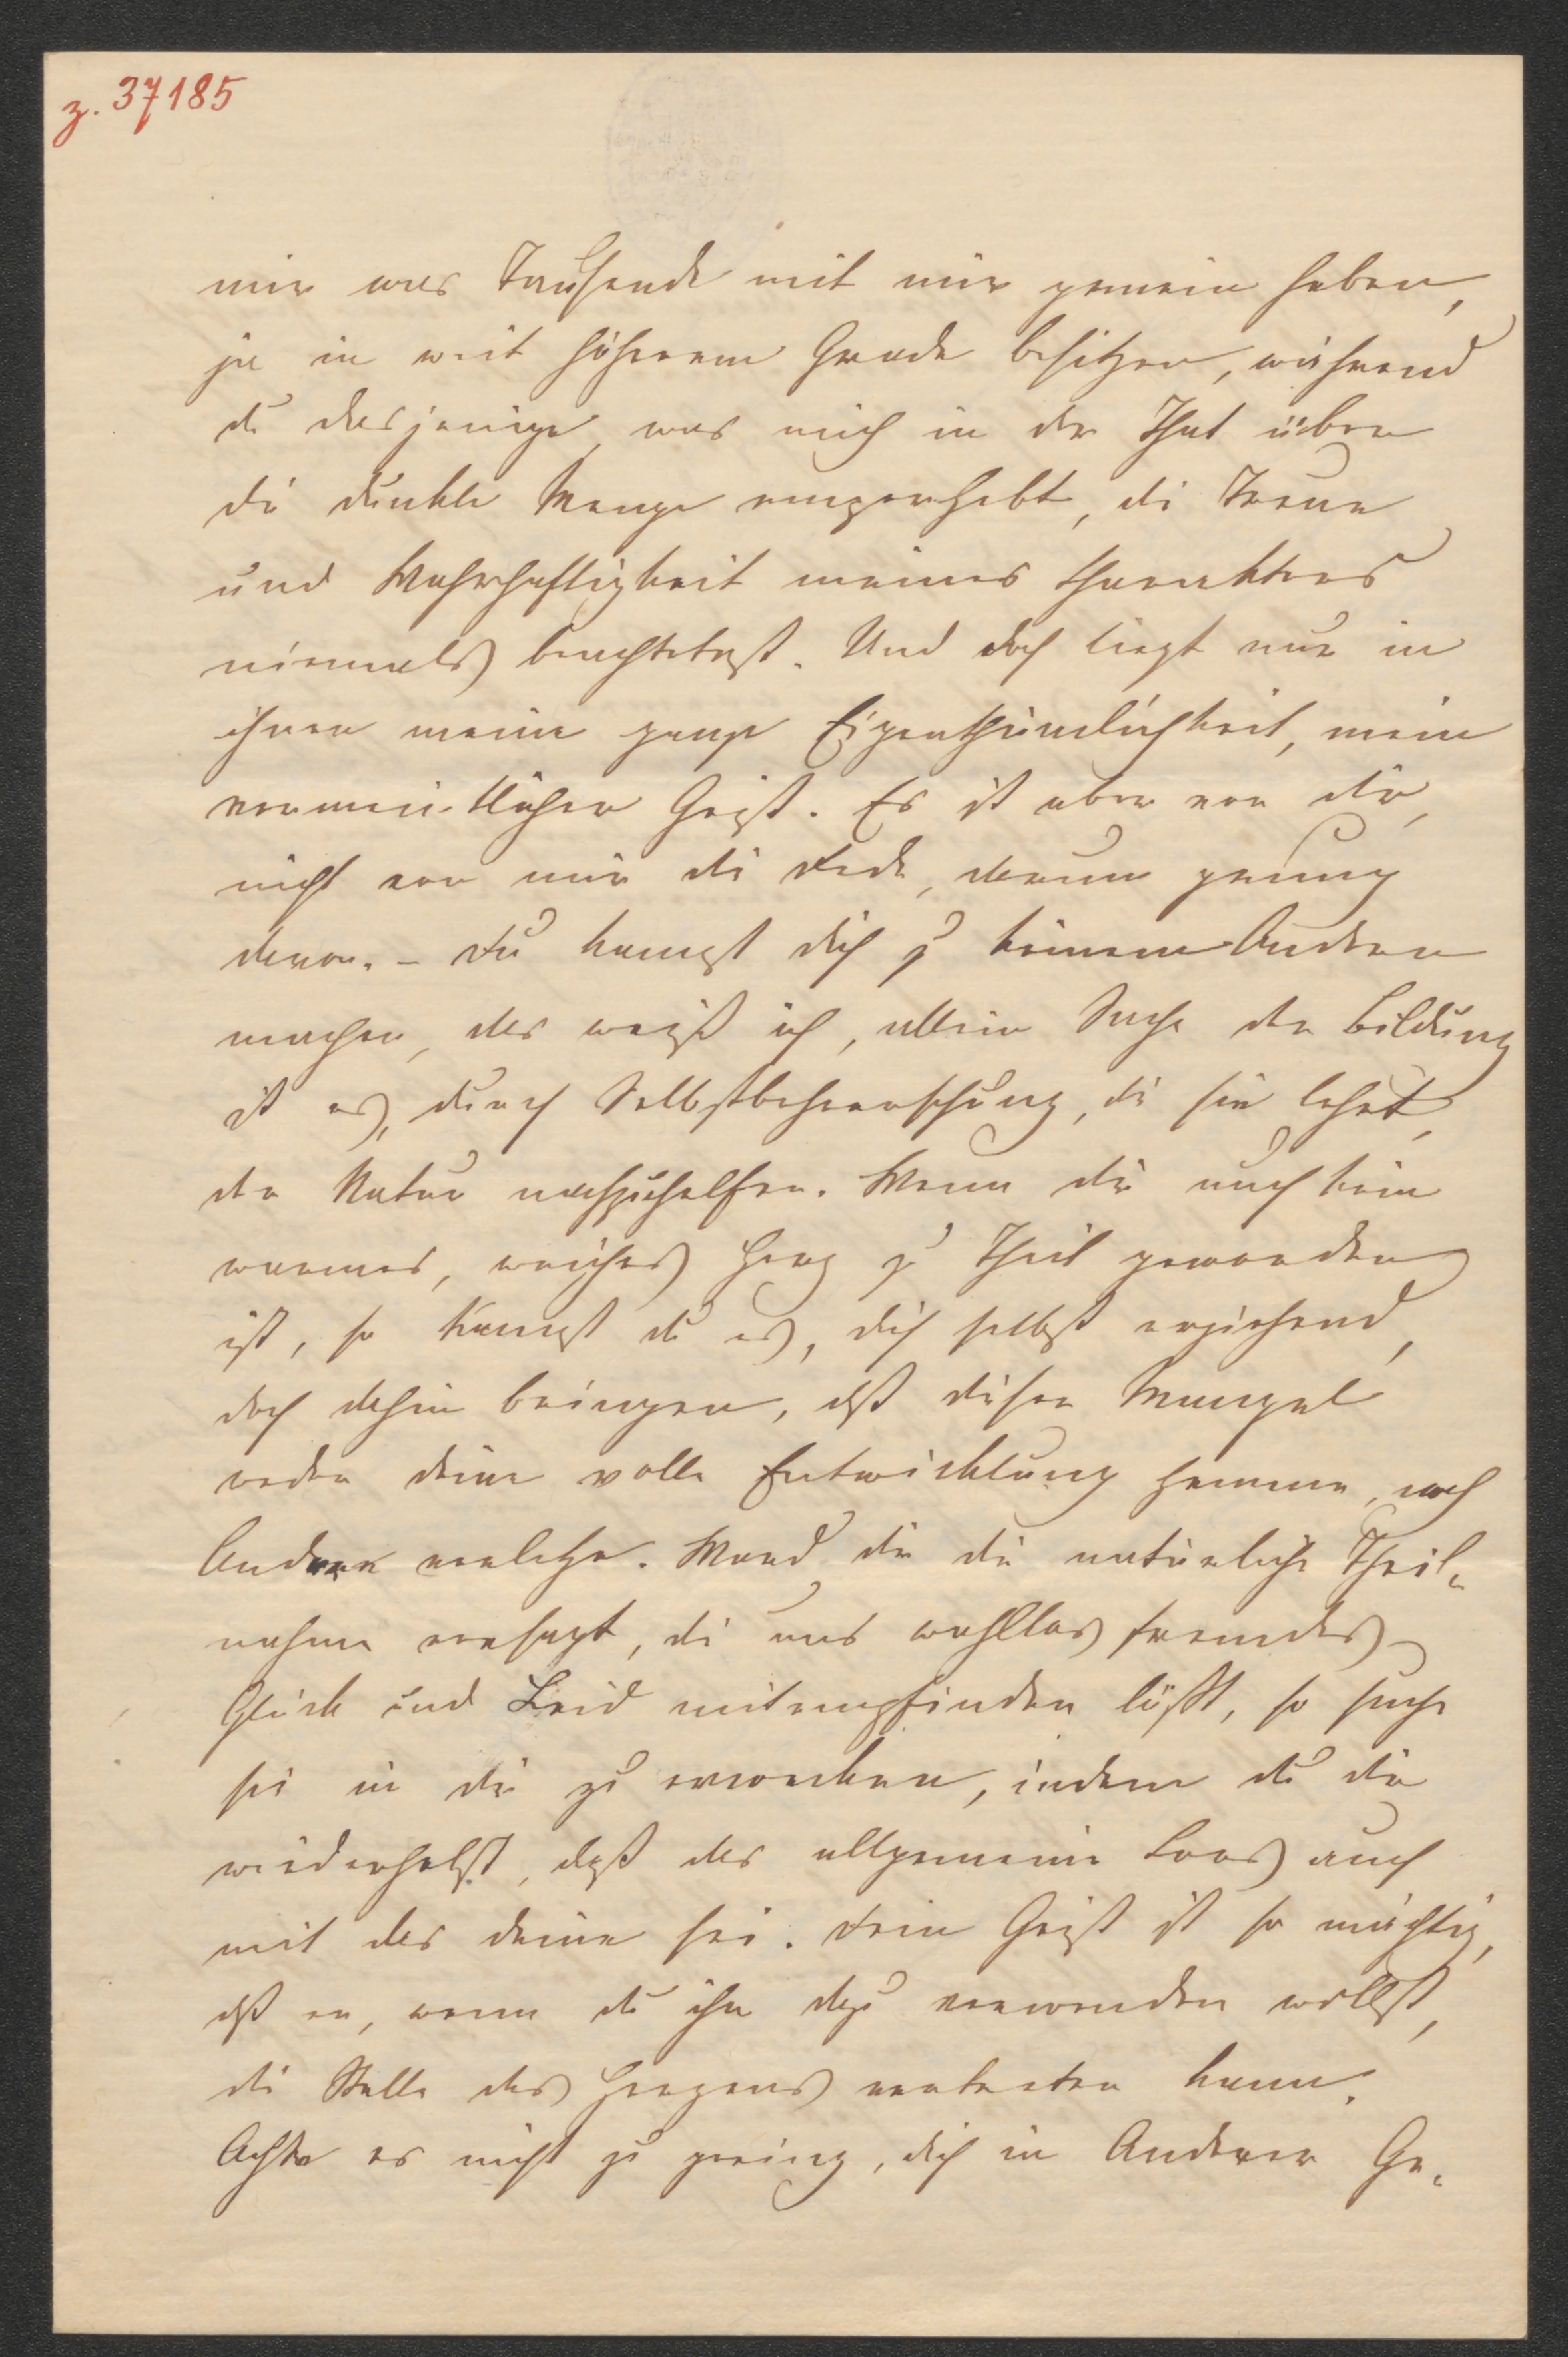 z. 37185
mir was Tausende mit mir gemein haben,
ja in weit höherem Grade besitzen, während
du dasjenige, was mich in der That über
die dunkle Menge emporhebt, die Treue
und Wahrhaftigkeit meines Charakters
niemals beachtetest. Und doch liegt nur in
ihnen meine ganze Eigenthümlichkeit, mein
vermeintlicher Geist. Es ist aber von dir,
nicht von mir die Rede, darum genung
davon. – Du kannst dich zu keinem Andern
machen, das weiß ich, allein Sache der Bildung
ist es, durch Selbstbeherrschung, die sie lehrt,
der Natur nachzuhelfen. Wenn dir auch kein
warmes, weiches Herz zu Theil geworden
ist, so kannst du es, dich selbst erziehend,
doch dahin bringen, daß dieser Mangel
weder deine volle Entwicklung hemme, noch
Andere verletze. Ward dir die natürliche Theil-
nahme versagt, die uns wahllos fremdes
Glück und Leid mitempfinden läßt, so suche
sie in dir zu erwecken, indem du dir
wiederholst, daß das allgemeine Loos auch
mit das deine sei. Dein Geist ist so mächtig,
daß er, wenn du ihn dazu verwenden willst,
die Stelle des Herzens vertreten kann.
Achte es nicht zu gering, dich in Anderer Ge-